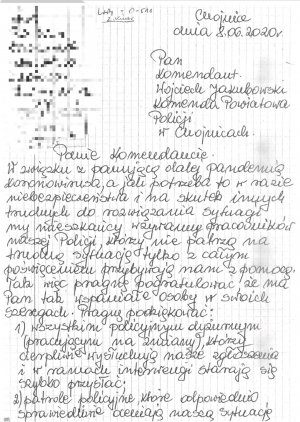 Chojnice
dnia 8.06.2020r.
Pan
Komendant
Wojciech Jakubowski
Komenda Powiatowa
Policji
w Chojnicach.
Panie Komendancie.
W związku z panującą dalej pandemią
koronowirusa, a jak potrzeba to w razie
niebezpieczeństwa i na skutek innych
trudnych do rozwiązania sytuacji
my mieszkańcy wzywamy pracowników
naszej Policji, którzy nie patrzą na
trudną sytuację tylko z całym
poświęceniem przybywają nam z pomocą.
Tak więc pragnę pogratulować, że ma
Pan tak wspaniałe osoby w swoich
szeregach. Pragnę podziękować:
1) wszystkim policyjnym dyżurnym
(pracującym na zmiany), którzy
cierpliwie wysłuchują nasze zgłoszenia
i w ramach interwencji starają się
szybko przysłać;
2) patrole policyjne, które odpowiednio
sprawiedliwie oceniają naszą sytuację